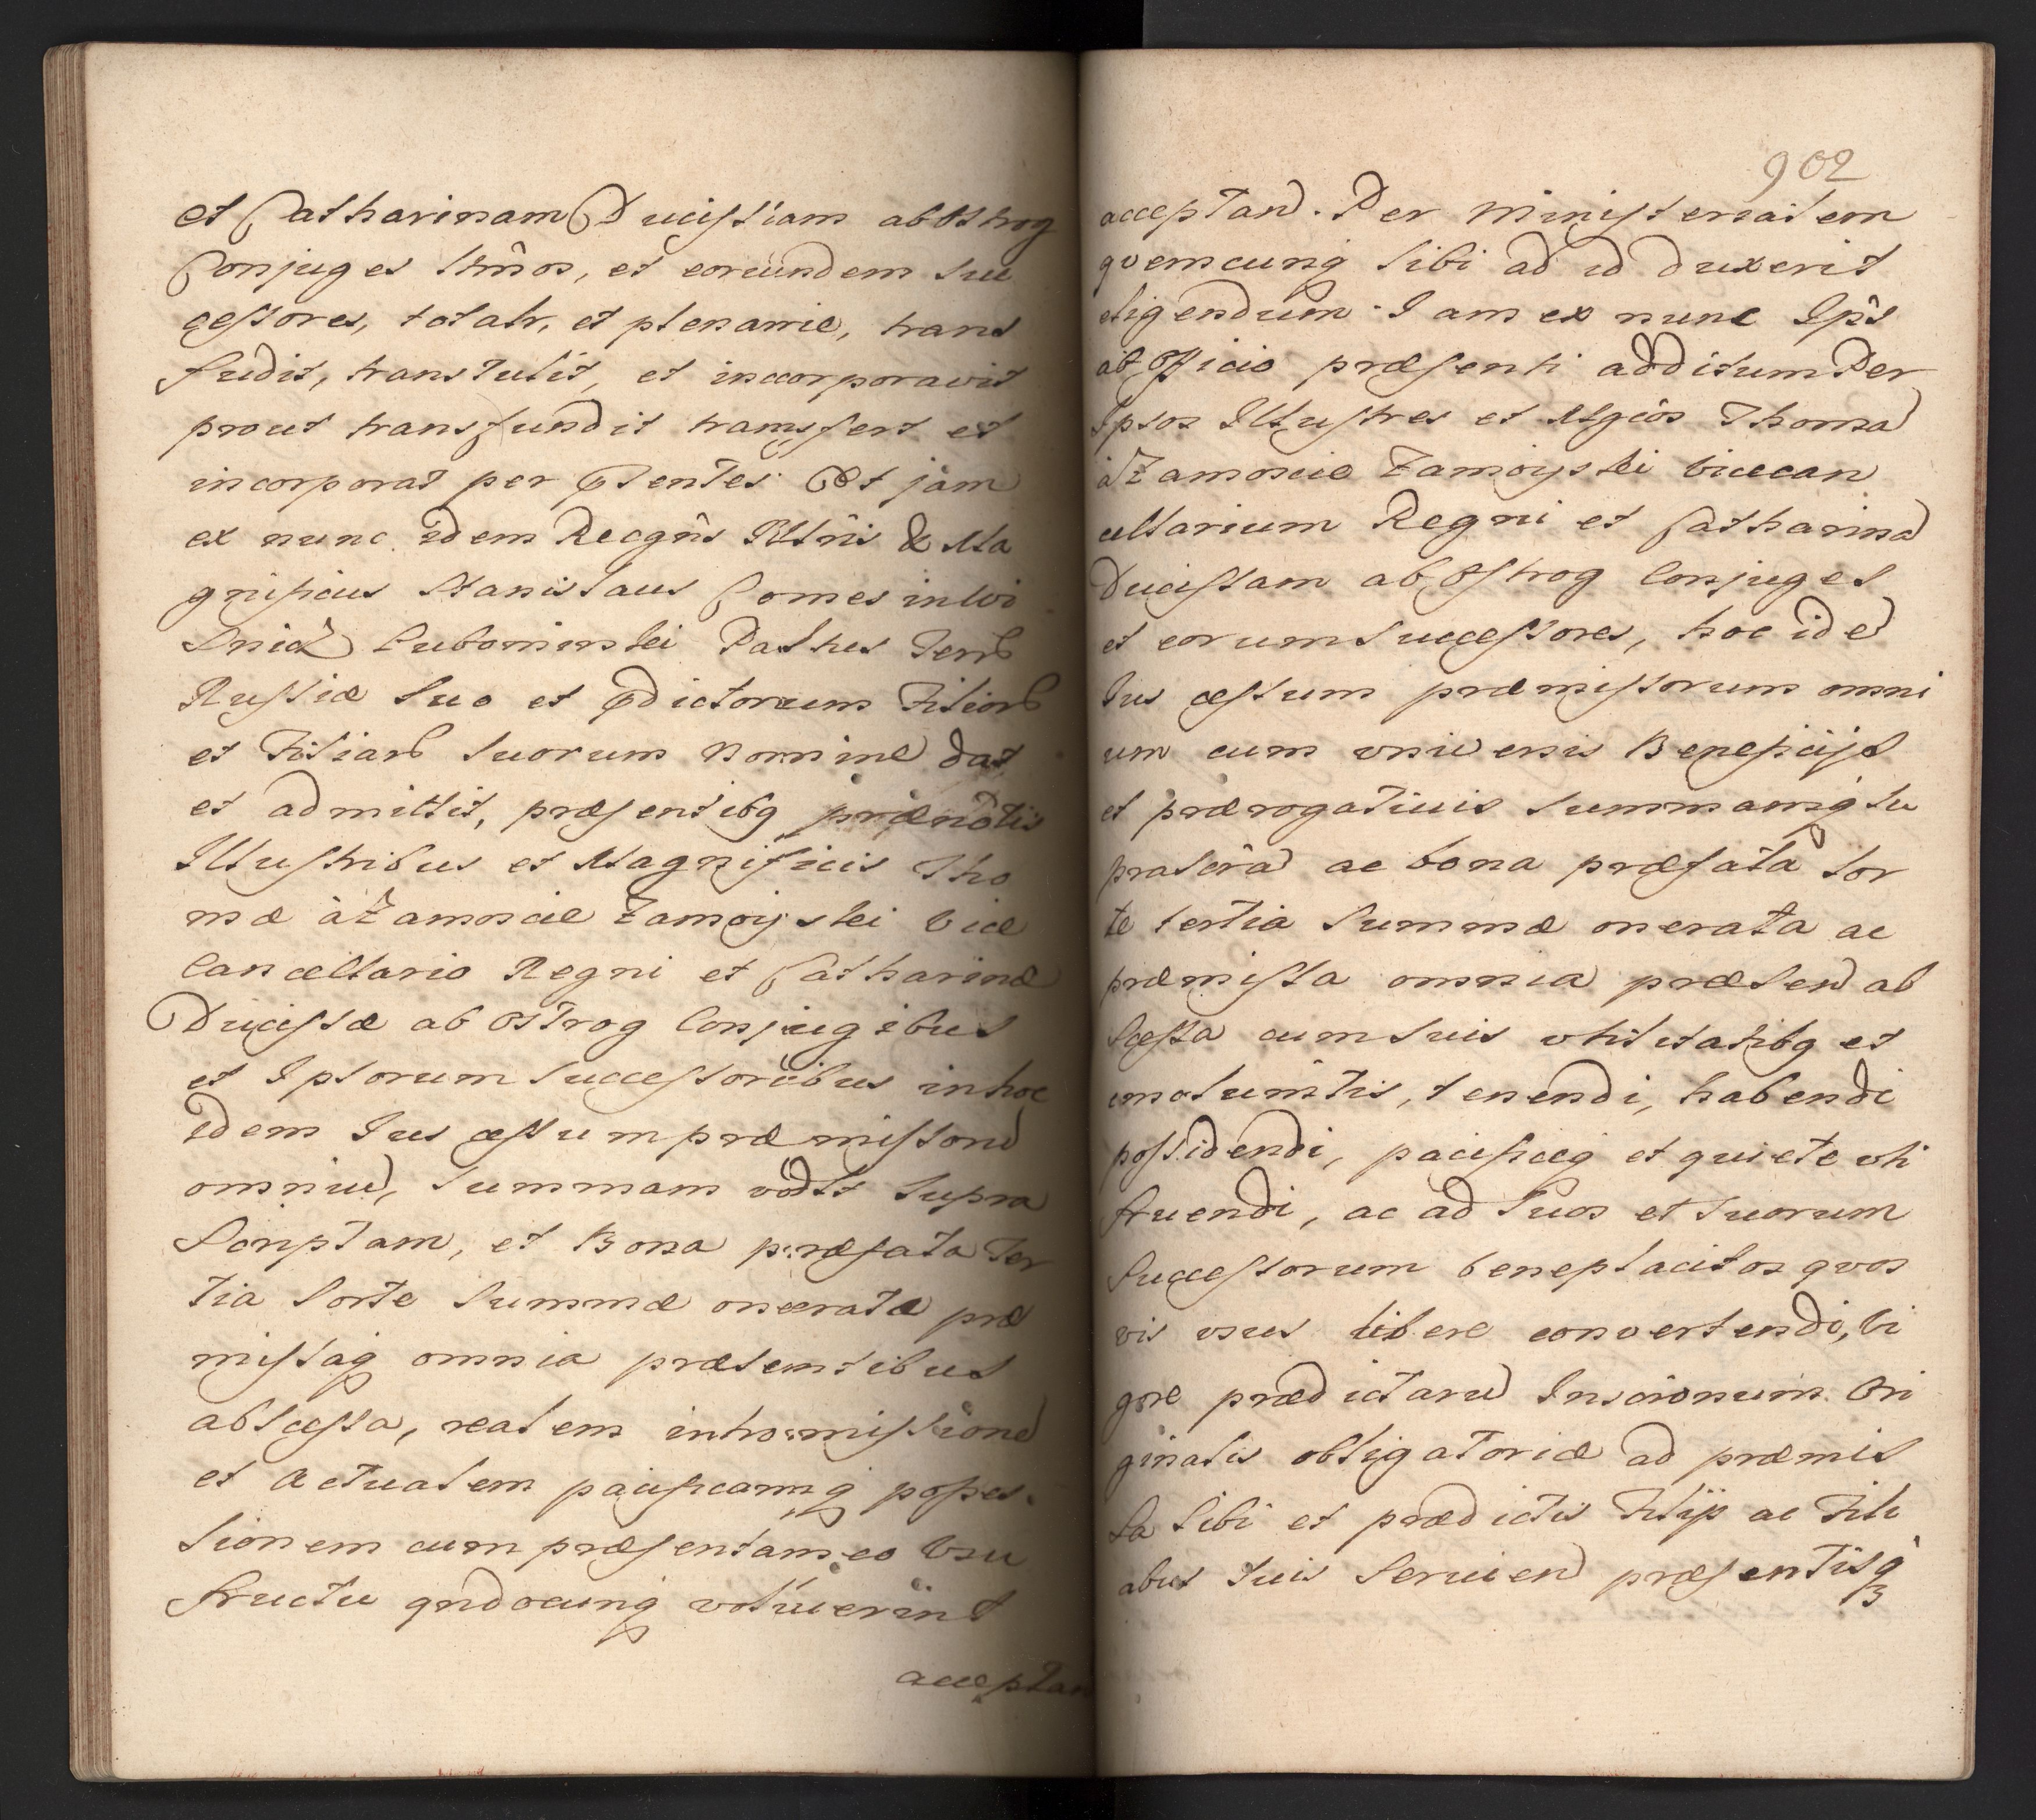 et Catharinam Ducissam ab Ostrog
Conjuges Itmôs, et eorundem suc
cessores, totalr, et plenarie, trans
fudit, transtulit, et incorporavit
prout transfundit transfert et
incorporat per pnTentes. Et jam
ex nunc idem Recgns Illris & Ma
gnificus Stanislaus Comes in Wi
snicz Lubomirski Dathes Terrar
Russiæ suo et pdictorum Filior
et Filiar suorum nomine dat
et admittit, præsentibq prænôtis
Illustribus et Magnificis Tho
mæ à Zamoscie Zamoyski Vice
Cancellario Regni et Catharinæ
Ducissæ ab Ostrog Conjugibus
et Ipsorum Successoribus in hoc
idem Ius cessum præmissorum
omniu, Summam vôdlt Supra
Scriptam, et Bona præfata Ter
tia Sorte Summæ onerata præ
missaq omnia præsentibus
abscessa, realem intromissione
et actualem pacificamq posses.
sionem cum præsentaneo Vsu
fructu qndocunq voluerint
acceptan
902
acceptand. Per Ministerialem
qvemcunq sibi ad id duxerit
eligendum. Iam ex nunc Ips
ab Officio præsenti additum Per
Ipsos Illustres et Mgcôs Thoma
à Zamoscie Zamoyski Vicecan
cellarium Regni et Catharina
Ducissam ab Ostrog Conjuges
et eorum Successores, hoc ide
Ius cessum præmissorum omni
um cum vniversis Beneficijs
et prærogativis Summamq su
prascra ac bona præfata sor
te tertia Summæ onerata ac
præmissa omnia præsen ab
scessa cum suis vtilitatibq et
emolumtis, tenendi, habendi
possidendi, pacificeq et quiete vti
fruendi, ac ad Suos et Suorum
Successorum beneplacitos qvos
vis vsus libere convertendi, Vi
gore prædictaru Inscrionum Ori
ginalis obligatoriæ ad præmis
sa Sibi et prædictis Filijs ac Fili
abus suis Servien præsentisq